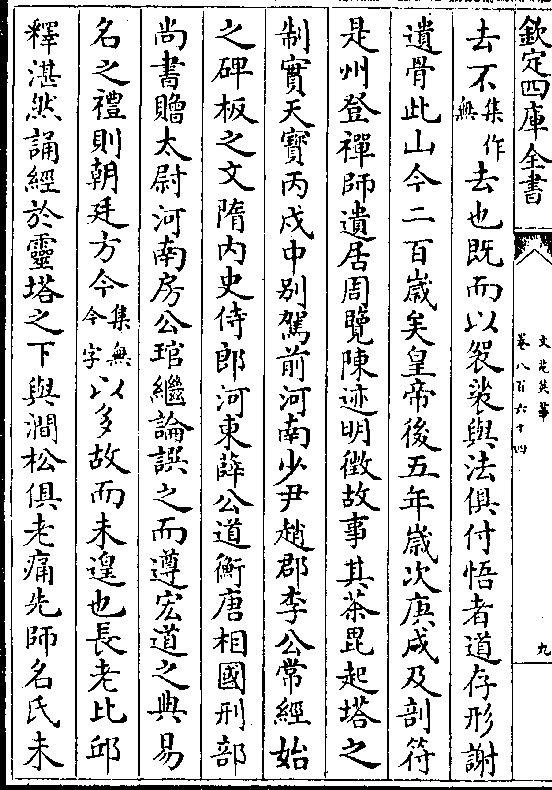 欽定四庫全書
文苑英華
卷八百六十四
九
去不集作無去也既而以袈裟與法俱付悟者道存形謝
遺骨此山今二百歳矣皇帝後五年歳次庚戍及剖符
是州登禪師遺居周覽陳迹明徴故事其茶毘起塔之
制實天寳丙戍中别駕前河南少尹趙郡李公常經始
之碑板之文隋内史侍郎河東薛公道衡唐相國刑部
尚書贈太尉河南房公琯繼論譔之而遵宏道之典易
名之禮則朝廷方今集無今字以多故而未遑也長老比邱
釋湛然誦經於靈塔之下與澗松俱老痛先師名氏未